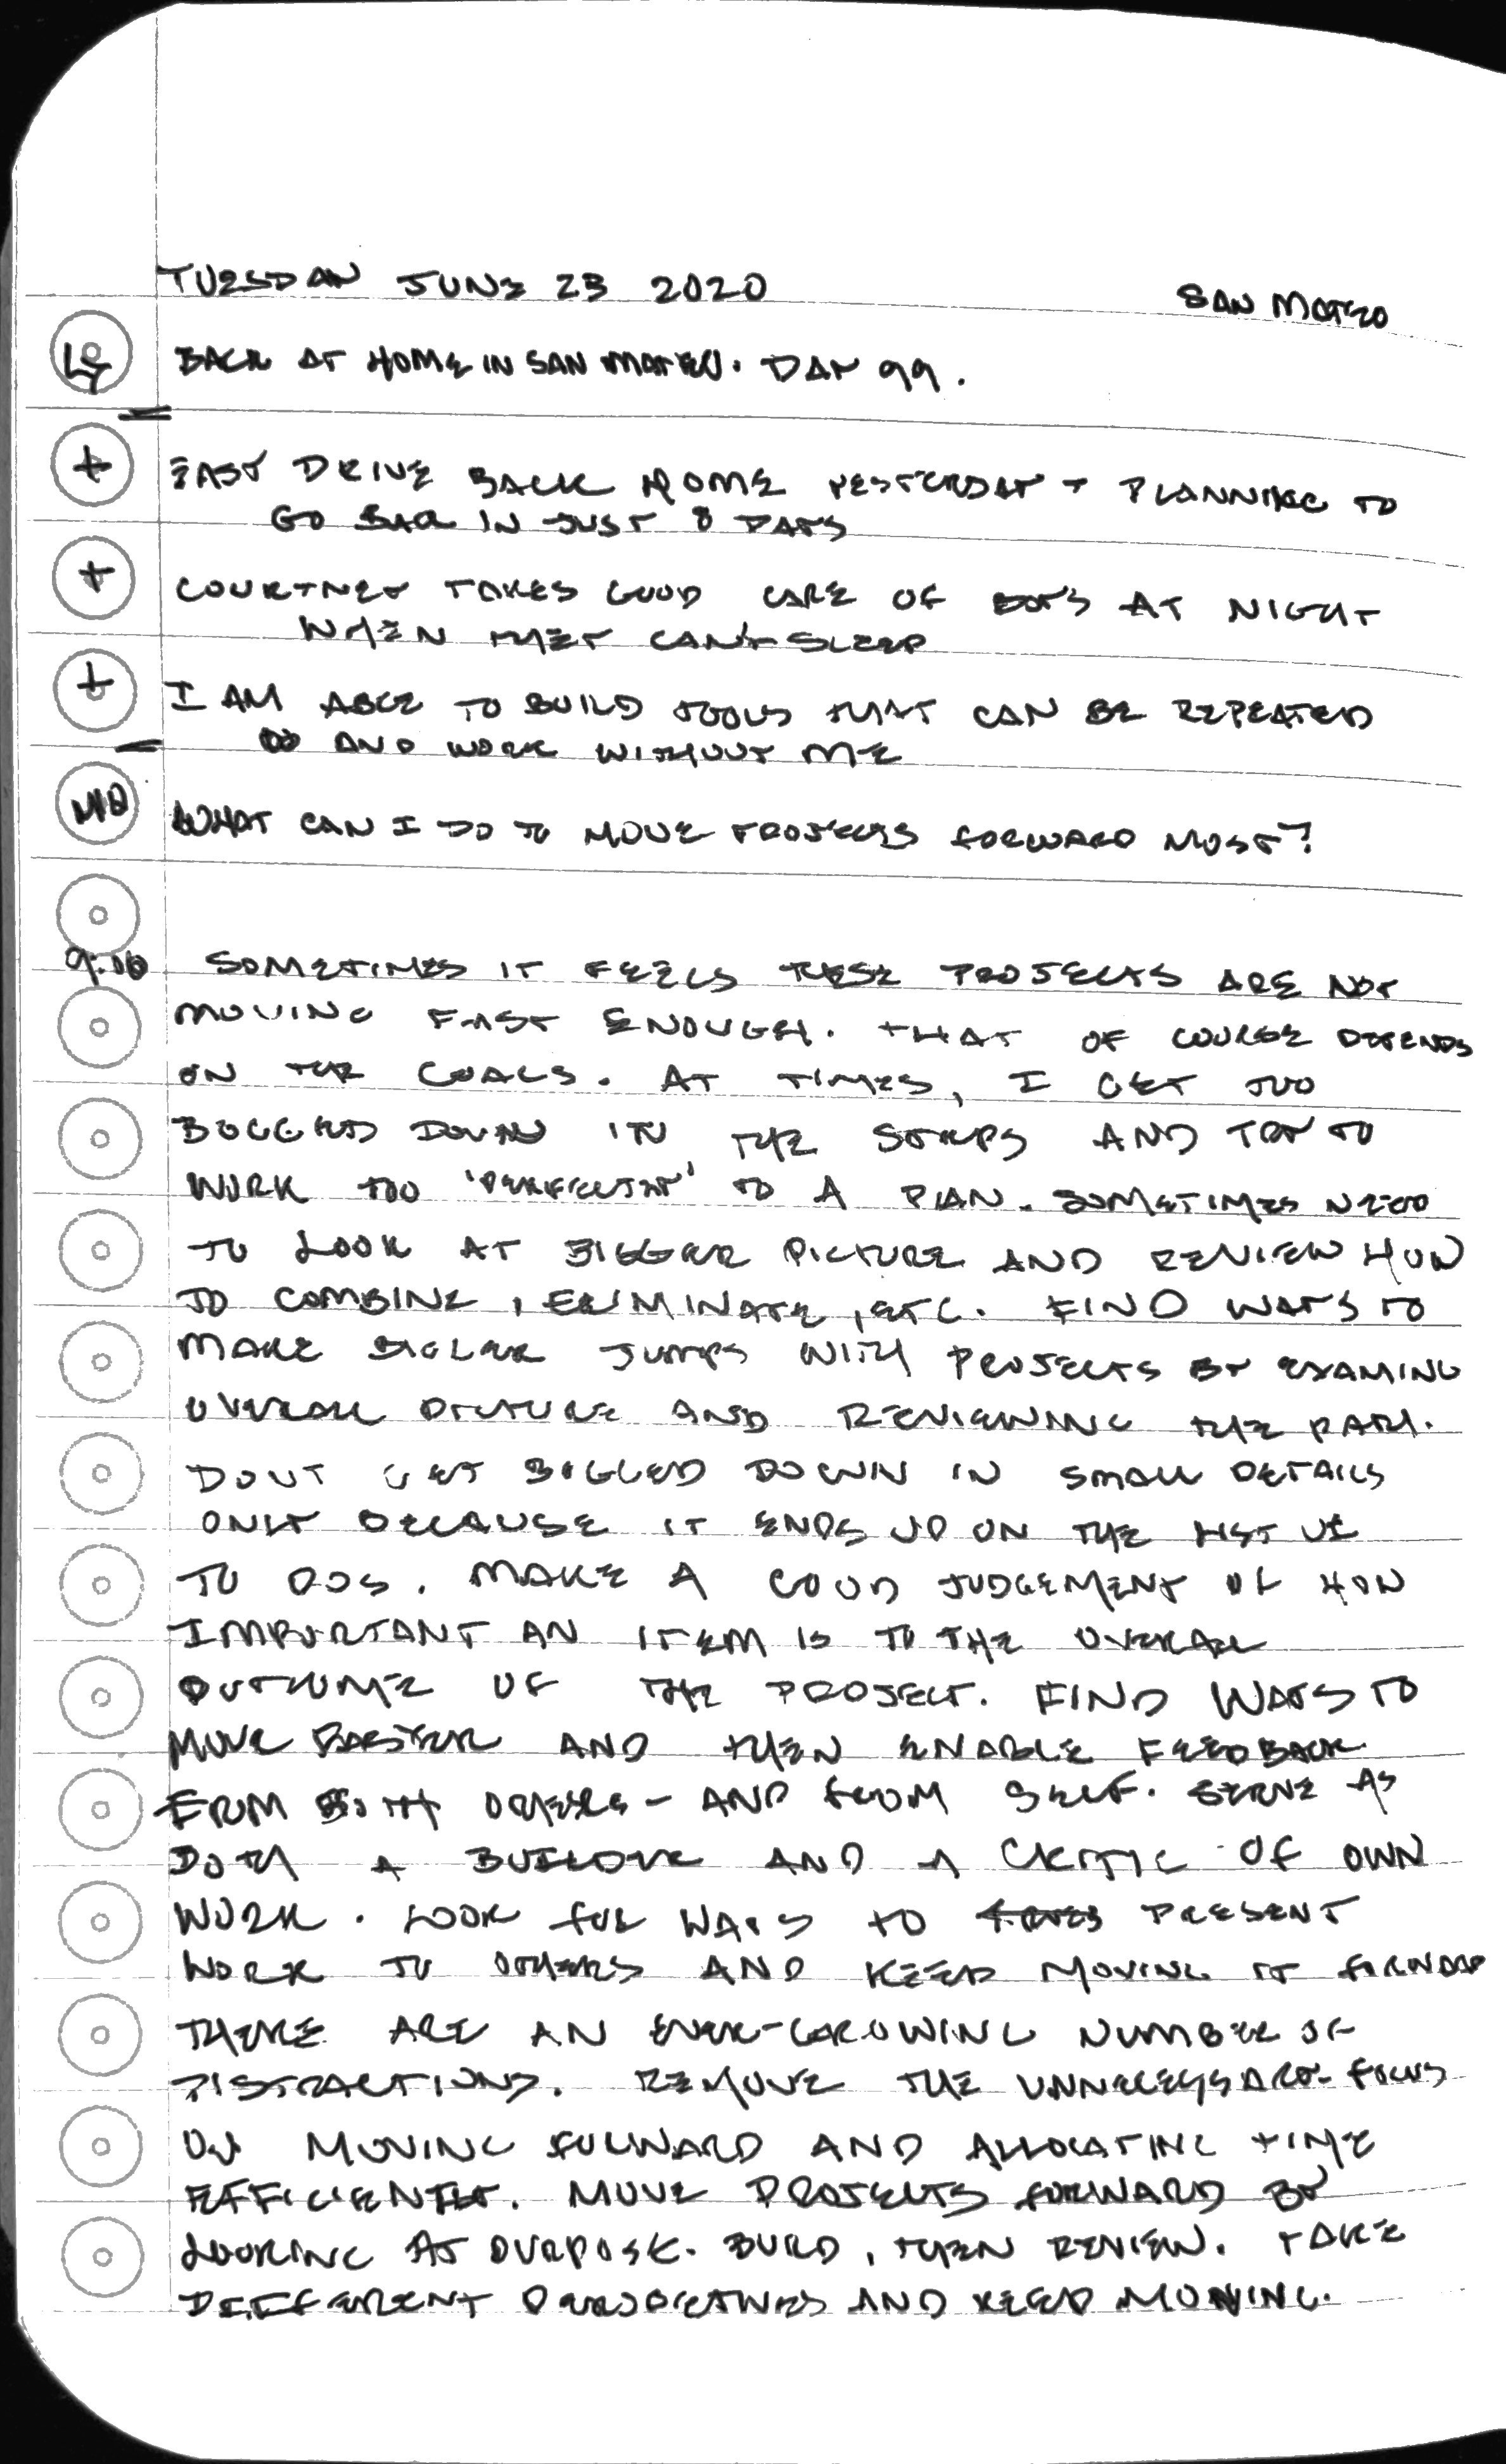 TUESDAY JUNE 23 2020
SAN MATEO
BACK AT HOME IN SAN MATEO. DAY 99.
+ EASY DRIVE BACK HOME YESTERDAY + PLANNING TO
GO BACK IN JUST 8 DAYS
+ COURTNEY TAKES GOOD CARE OF BOYS AT NIGHT
WHEN THEY CAN'T SLEEP
+ I AM ABLE TO BUILD TOOLS THAT CAN BE REPEATED
AND WORK WITHOUT ME
WHAT CAN I DO TO MOVE PROJECTS FORWARD MOST?
9:00 SOMETIMES IT FEELS THESE PROJECTS ARE NOT
MOVING FAST ENOUGH. THAT OF COURSE DEPENDS
ON THE GOALS. AT TIMES, I GET TOO
BOGGED DOWN IN THE STEPS AND TRY TO
WORK TOO 'PERFECTLY' TO A PLAN. SOMETIMES NEED
TO LOOK AT BIGGER PICTURE AND REVIEW HOW
TO COMBINE, ELIMINATE, ETC. FIND WAYS TO
MAKE BIGGER JUMPS WITH PROJECTS BY EXAMING
OVERALL PICTURE AND REVIEWING THE PATH.
DONT GET BOGGED DOWN IN SMALL DETAILS
ONLY BECAUSE IT ENDS UP ON THE LIST OF
TO DOS. MAKE A GOOD JUDGEMENT OF HOW
IMPORTANT AN ITEM IS TO THE OVERALL
OUTCOME OF THE PROJECT. FIND WAYS TO
MOVE FASTER AND THEN ENABLE FEEDBACK
FROM BOTH OTHERS - AND FROM SELF. SERVE AS
BOTH A BUILDER AND A CRITIC OF OWN
WORK. LOOK FOR WAYS TO PRESENT
WORK TO OTHERS AND KEEP MOVING IT FORWARD
THERE ARE AN EVER-GROWING NUMBER OF
DISTRACTIONS. REMOVE THE UNNECESSARY. FOCUS
ON MOVING FORWARD AND ALLOCATING TIME
EFFICIENTLY. MOVE PROJECTS FORWARD BY
LOOKING AT PURPOSE. BUILD, THEN REVIEW. TAKE
DIFFERENT PERSPECTIVES AND KEEP MOVING.